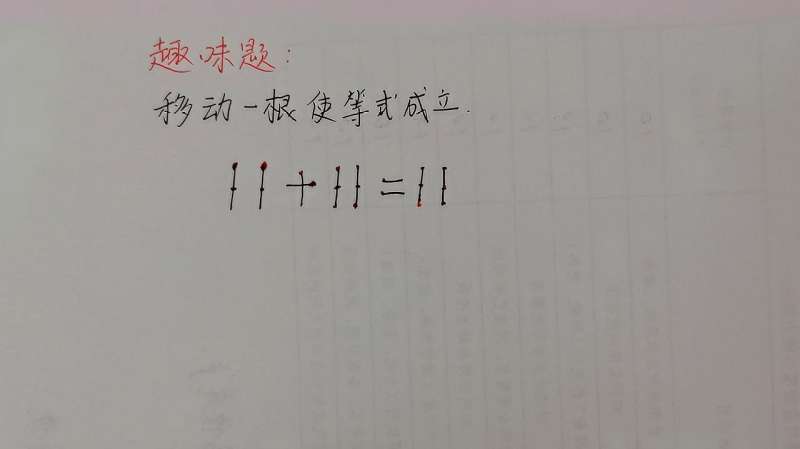 趣味题:
移动一根使等式成立.
11+11=11